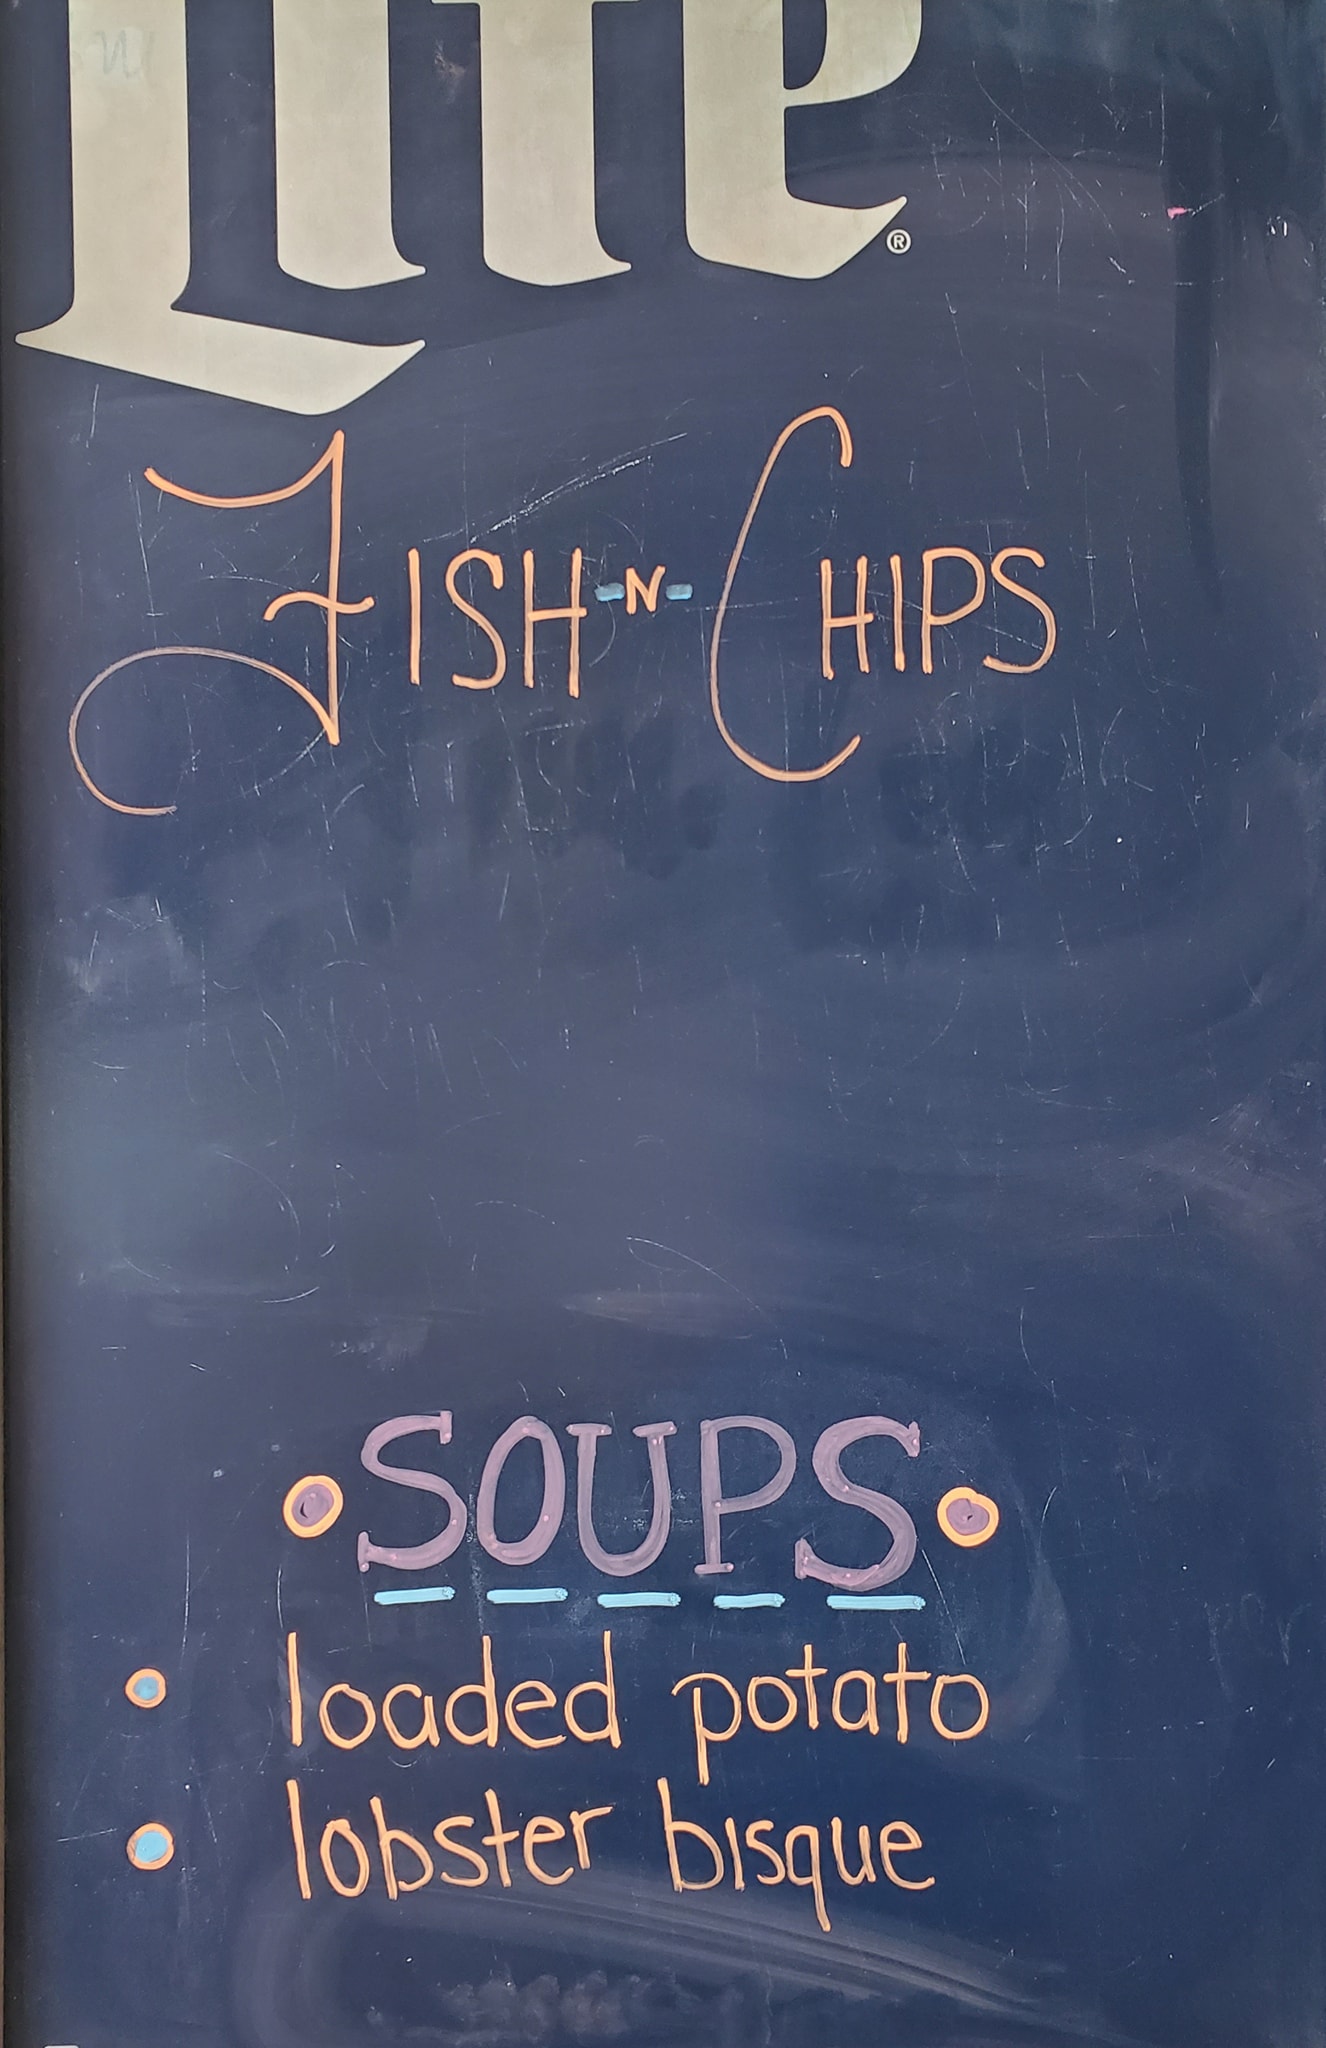 Lite®
FISH-N-CHIPS
SOUPS
loaded potato
lobster bisque